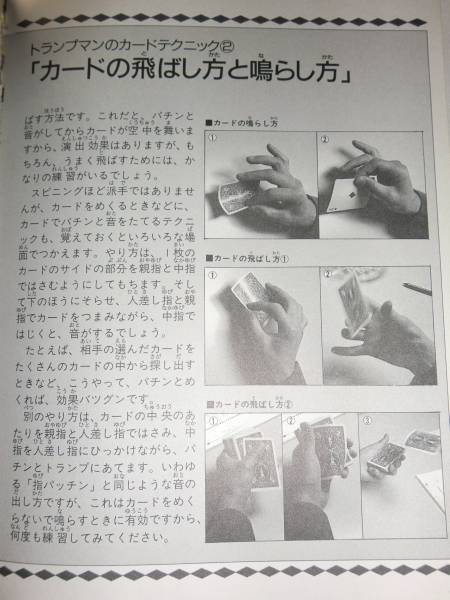 トランプマンのカードテクニック②
「カードの飛ばし方と鳴らし方」
ばす方法です。これだと、パチンと
音がしてからカードが空中を舞いま
すから、演出効果はありますが、も
ちろん、うまく飛ばすためには、か
なりの練習がいるでしょう。
スピニングほど派手ではありませ
んが、カードをめくるときなどに、
カードでパチンと音をたてるテクニ
ックも、覚えておくといろいろな場
面でつかえます。やり方は、1枚の
カードのサイドの部分を親指と中指
ではさむようにしてもちます。そし
て下のほうにそらせ、人差し指と親
指でカードをつまみながら、中指で
はじくと、音がするでしょう。
たとえば、相手の選んだカードを
たくさんのカードの中から探し出す
ときなど、こうやって、パチンとめ
くれば、効果バツグンです。
別のやり方は、カードの中央のあ
たりを親指と人差し指ではさみ、中
指を人差し指にひっかけながら、パ
チンとトランプにあてます。いわゆ
る「指パッチン」と同じような音の
出し方ですが、これはカードをめく
らないで鳴らすときに有効ですから、
何度も練習してみてください。
■カードの鳴らし方
①
②
■カードの飛ばし方①
①
②
■カードの飛ばし方②
①
②
③